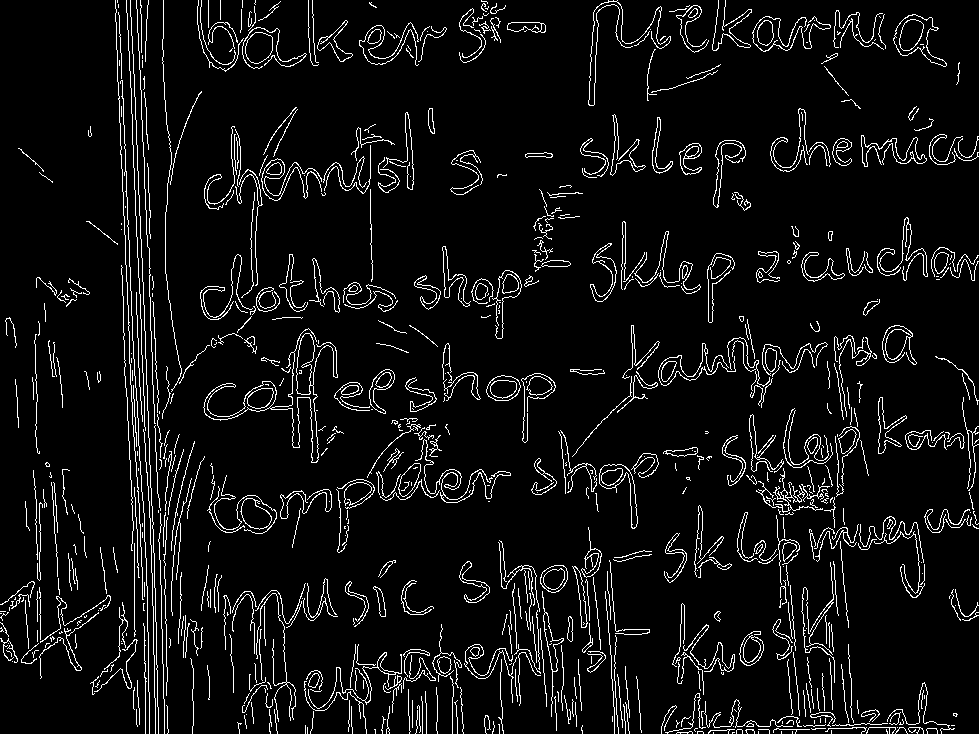 baker's - piekarnia
chemist's - sklep chemicz
clothes shop - sklep z ciucham
coffee shop - kawiarnia
computer shop - sklep komp
music shop - sklep muzycz
newsagent's - kiosk